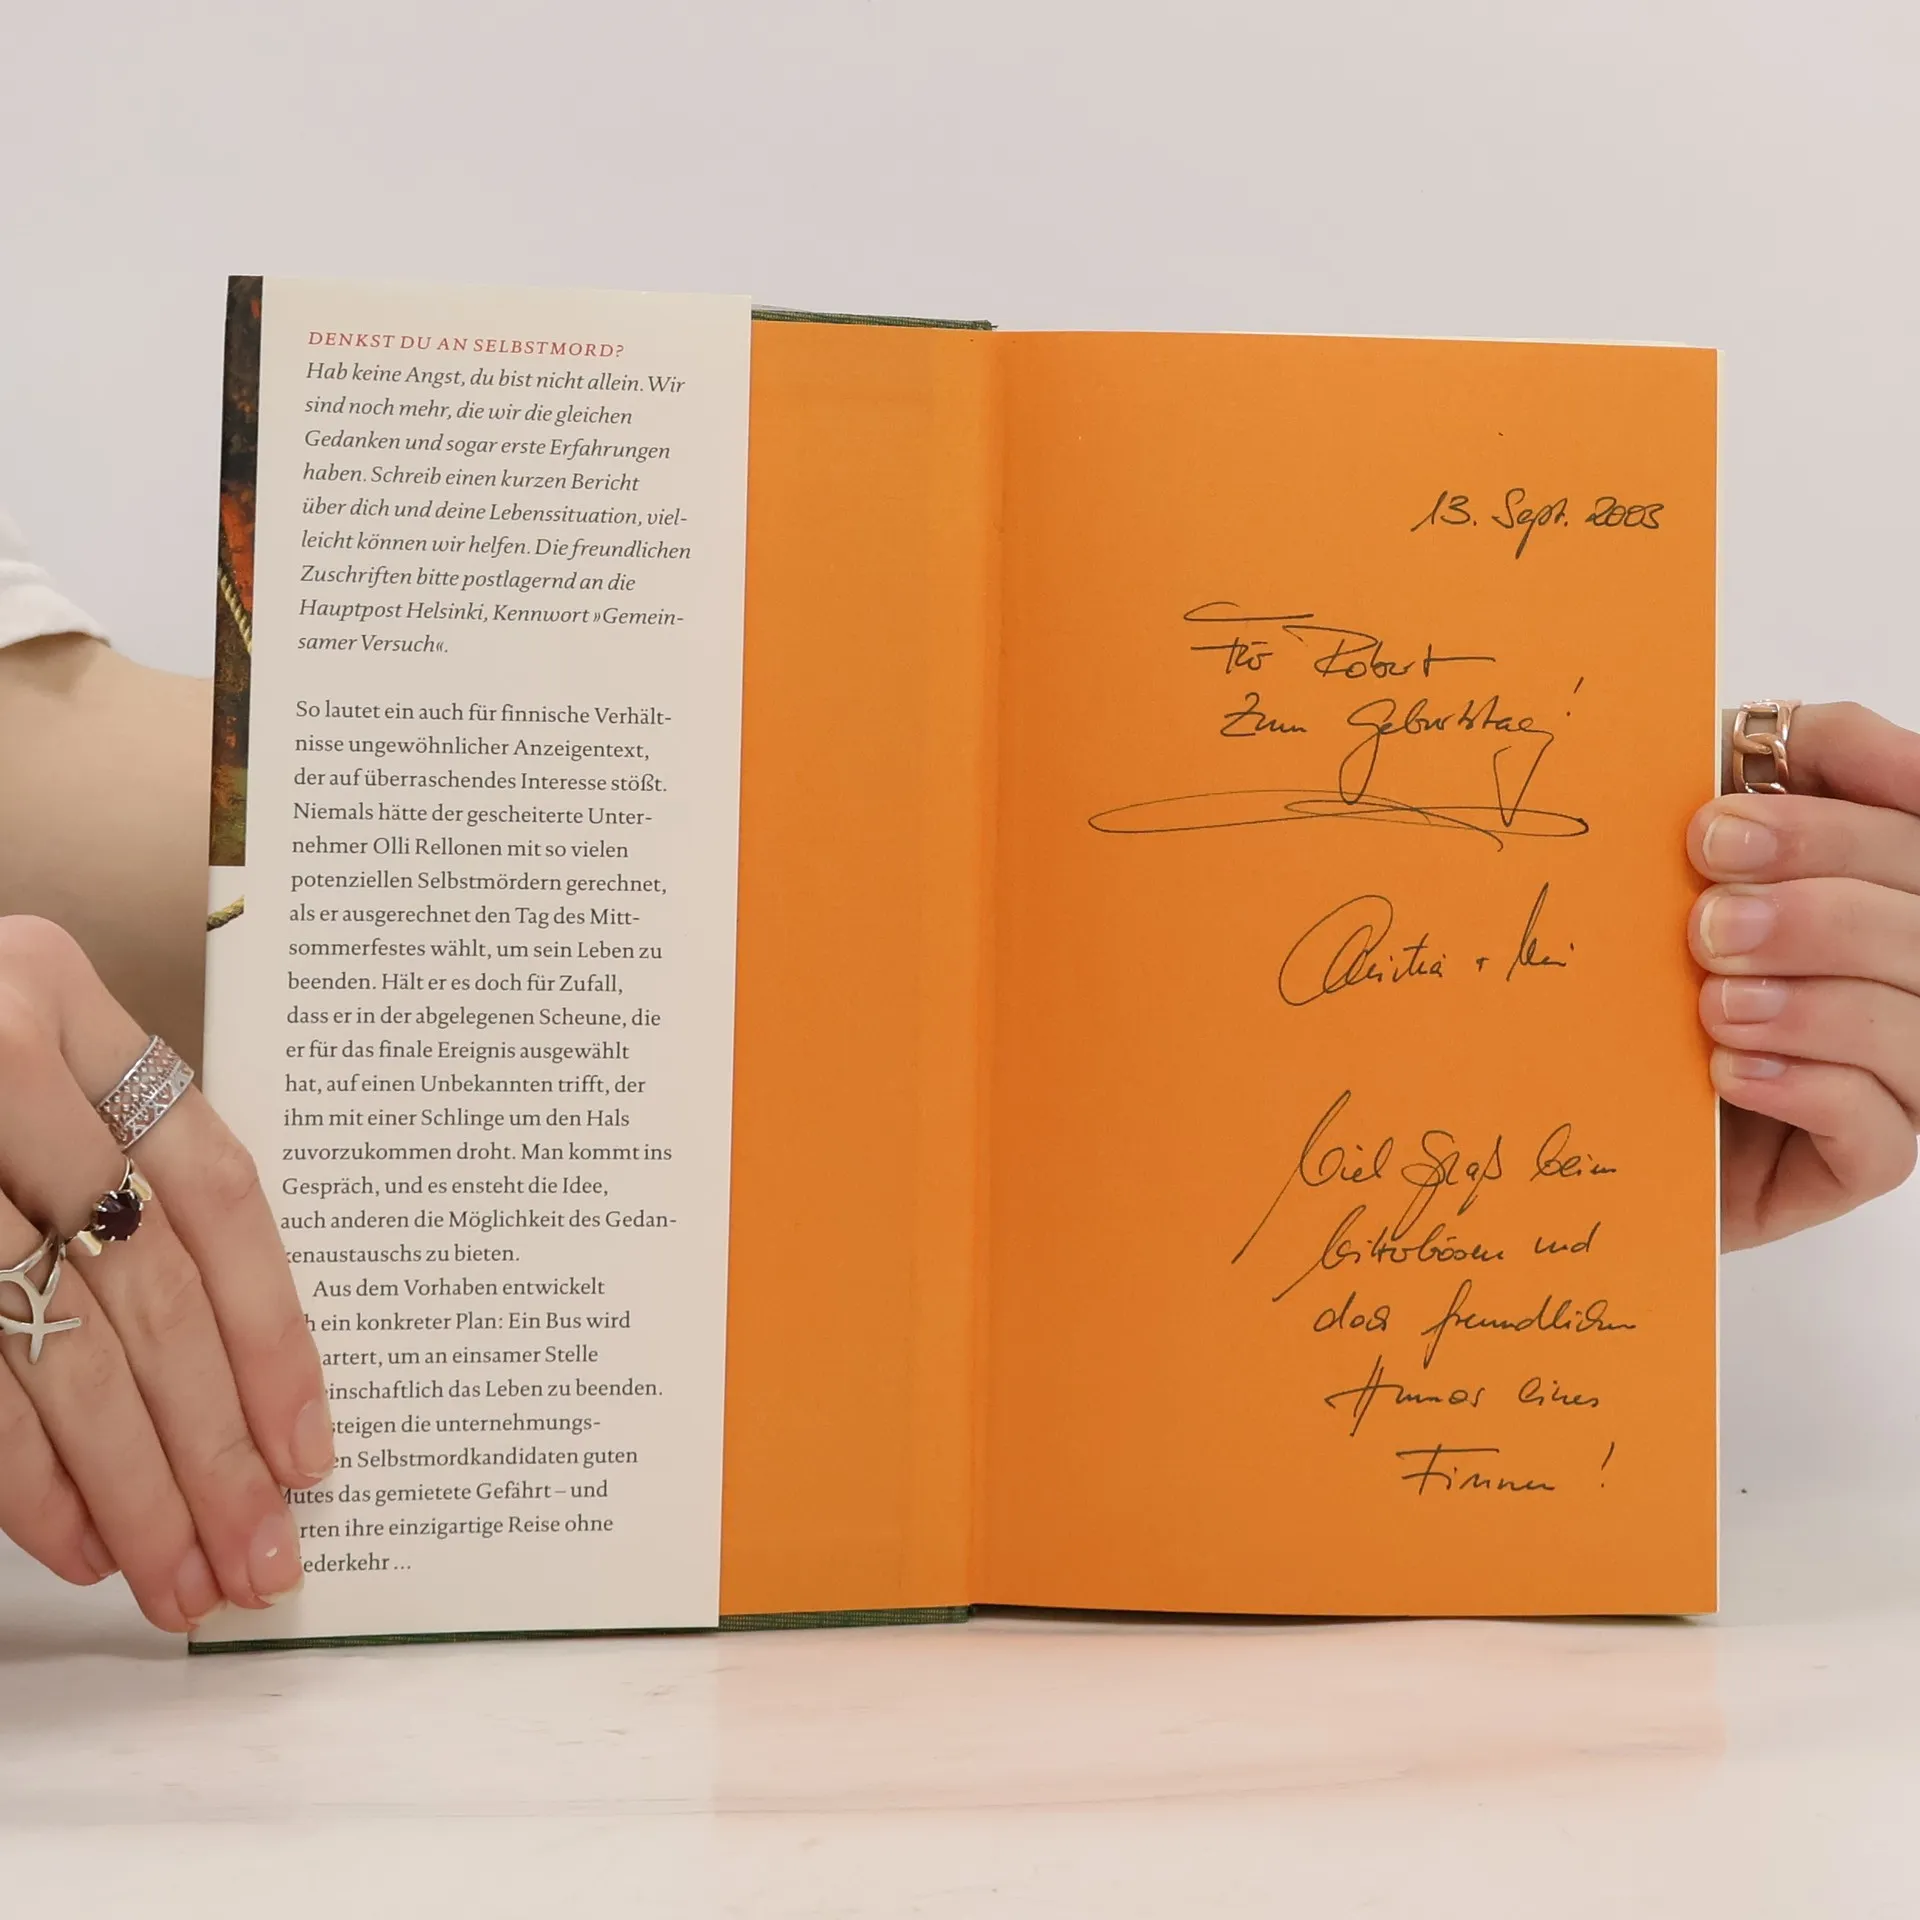 DENKST DU AN SELBSTMORD?
Hab keine Angst, du bist nicht allein. Wir
sind noch mehr, die wir die gleichen
Gedanken und sogar erste Erfahrungen
haben. Schreib einen kurzen Bericht
über dich und deine Lebenssituation, viel-
leicht können wir helfen. Die freundlichen
Zuschriften bitte postlagernd an die
Hauptpost Helsinki, Kennwort »Gemein-
samer Versuch«.
So lautet ein auch für finnische Verhält-
nisse ungewöhnlicher Anzeigentext,
der auf überraschendes Interesse stößt.
Niemals hätte der gescheiterte Unter-
nehmer Olli Rellonen mit so vielen
potenziellen Selbstmördern gerechnet,
als er ausgerechnet den Tag des Mitt-
sommerfestes wählt, um sein Leben zu
beenden. Hält er es doch für Zufall,
dass er in der abgelegenen Scheune, die
er für das finale Ereignis ausgewählt
hat, auf einen Unbekannten trifft, der
ihm mit einer Schlinge um den Hals
zuvorzukommen droht. Man kommt ins
Gespräch, und es ensteht die Idee,
auch anderen die Möglichkeit des Gedan-
kenaustauschs zu bieten.
Aus dem Vorhaben entwickelt
h ein konkreter Plan: Ein Bus wird
artert, um an einsamer Stelle
einschaftlich das Leben zu beenden.
steigen die unternehmungs-
en Selbstmordkandidaten guten
Mutes das gemietete Gefährt – und
rten ihre einzigartige Reise ohne
iederkehr ...
13. Sept. 2003
Für Robert
Zum Geburtstag!
Viel Spaß beim
bitterbösen und
doch freundlichen
Humor eines
Finnen!